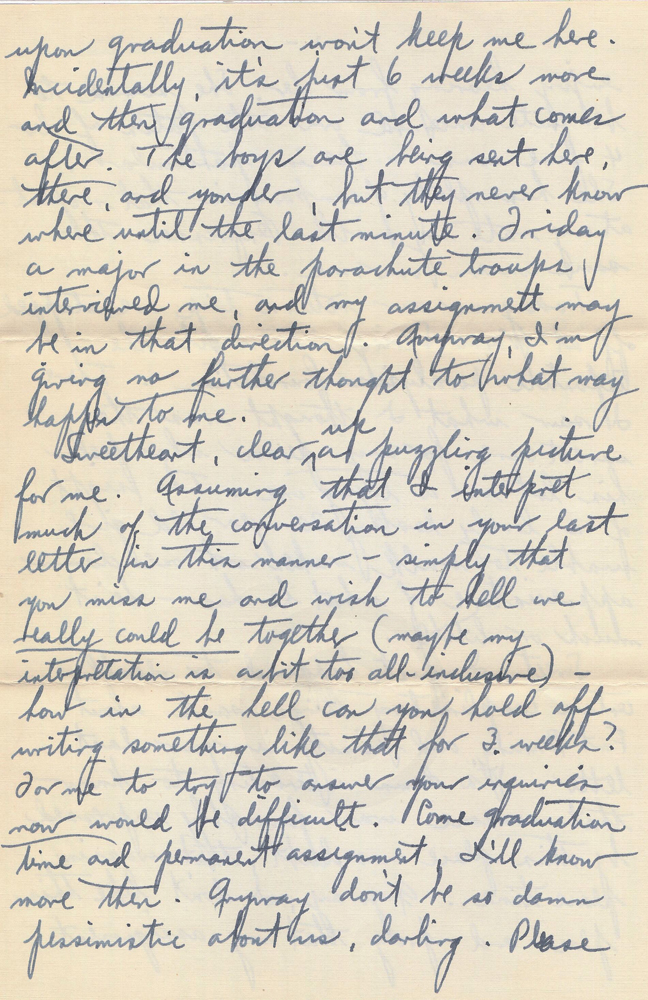 upon graduation won't keep me here.
Incidentally, it's just 6 weeks more
and then graduation and what comes
after. The boys are being sent here,
there, and yonder, but they never know
where until the last minute. Friday
a major in the parachute troups
interviewed me, and my assignment may
be in that direction. Anyway, I'm
giving no further thought to what may
happen to me.
Sweetheart, clear up a puzzling picture
for me. Assuming that I interpret
much of the conversation in your last
letter in this manner - simply that
you miss me and wish to hell we
really could be together (maybe my
interpretation is a bit too all-inclusive) -
how in the hell can you hold off
writing something like that for 3 weeks?
For me to try to answer your inquiries
now would be difficult. Come graduation
time and permanent assignment, I'll know
more then. Anyway don't be so damn
pessimistic about us, darling. Please